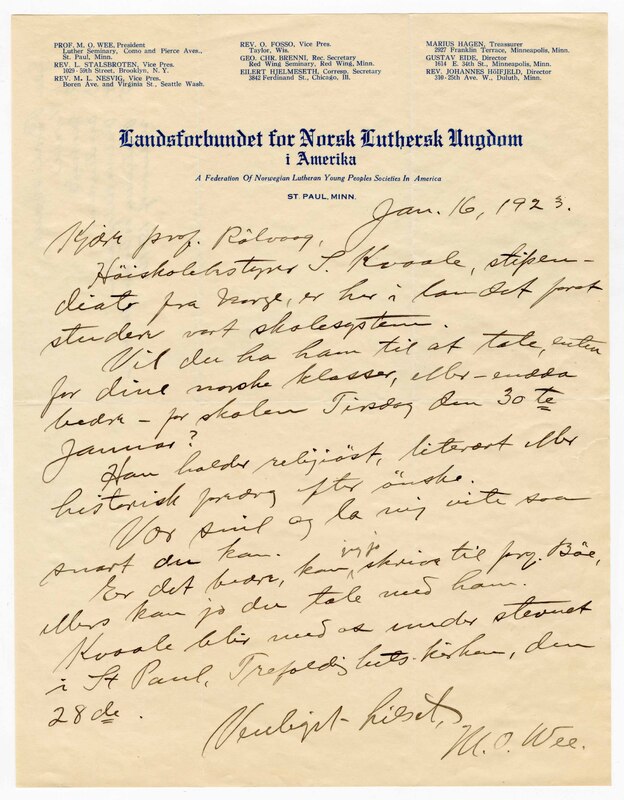 PROF. M. O. WEE, President
Luther Seminary, Como and Pierce Aves.,
St. Paul, Minn.
REV. L. STALSBROTEN, Vice Pres.
1029 - 59th Street, Brooklyn, N. Y.
REV. M. L. NESVIG, Vice Pres.
Boren Ave. and Virginia St., Seattle Wash.
REV. O. FOSSO, Vice Pres.
Taylor, Wis.
GEO. CHR. BRENNI, Rec. Secretary
Red Wing Seminary, Red Wing, Minn.
EILERT HJELMESETH, Corresp. Secretary
3842 Ferdinand St., Chicago, Ill.
MARIUS HAGEN, Treassurer
2927 Franklin Terrace, Minneapolis, Minn.
GUSTAV EIDE, Director
1614 E. 34th St., Minneapolis, Minn.
REV. JOHANNES HÖIFJELD, Director
210-25th Ave. W., Duluth, Minn.
Landsforbundet for Norsk Luthersk Ungdom
i Amerika
A Federation Of Norwegian Lutheran Young Peoples Societies In America
ST. PAUL, MINN.
Jan. 16, 1923.
Kjære prof. Rölvaag,
Höiskolebestyrer S. Kvaale, stipen-
diat fra Norge, er her i landet for at
studere vort skolesystem.
Vil du ha ham til at tale, enten
for dine norske klasser, eller - endda
bedre - for skolen Tirsdag den 30te
Januar?
Han holder religiöst, literært eller
historisk foredrag efter önske.
Vær snil og la mig vite saa
snart du kan.
Er det bedre, kan jeg skrive til prof. Böe,
ellers kan jo du tale med ham.
Kvaale blir med os under stevnet
i St Paul, Trefoldighets-kirken, den
28de.
Venligst hilset,
M. O. Wee.